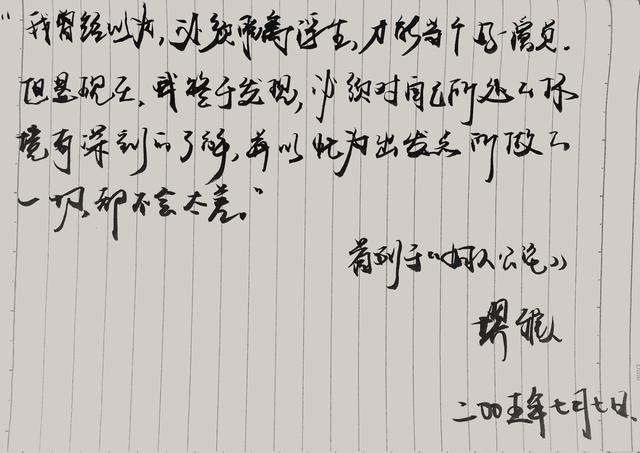 “我曾经以为,必须脱离浮生,才能当个好演员.
但是现在,我终于发现,必须对自己所处的环
境有深刻的了解,并以此为出发点所做的
一切,都不会太差。”
摘到于《
堺雅人
二00五年七月七日.